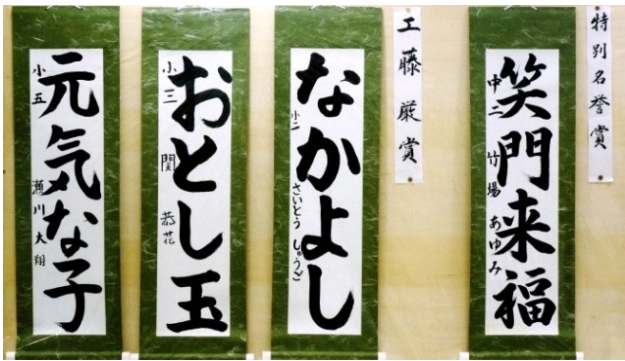 特別名誉賞
笑門来福
中二 竹場 あゆみ
工藤厳賞
なかよし
小二 さいとう しゅうご
おとし玉
小三 関 恭花
元気な子
小五 瀬川 大翔